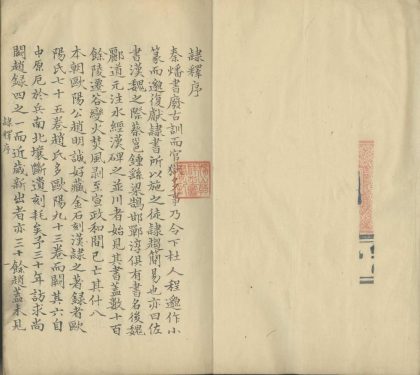 隷釋序
秦燔書廢古訓而官獄多事乃令下杜人程邈作小
篆而邈復獻隷書所以施之徒隷趨簡易也亦曰佐
書漢魏之際蔡邕鍾繇梁鵠邯鄲淳俱有書名後魏
酈道元注水經漢碑之並川者始見其書蓋數十百
餘陵遷谷變火焚風剥至宣政和間已亡其什八
本朝歐陽公趙明誠好藏金石刻漢隷之著録者歐
陽氏七十五卷趙氏多歐陽九十三卷而闕其六自
中原厄於兵南北壤斷遺刻耗矣予三十年訪求尚
闕趙録四之一而近歲新出者亦三十餘趙蓋未見
隷釋序
一